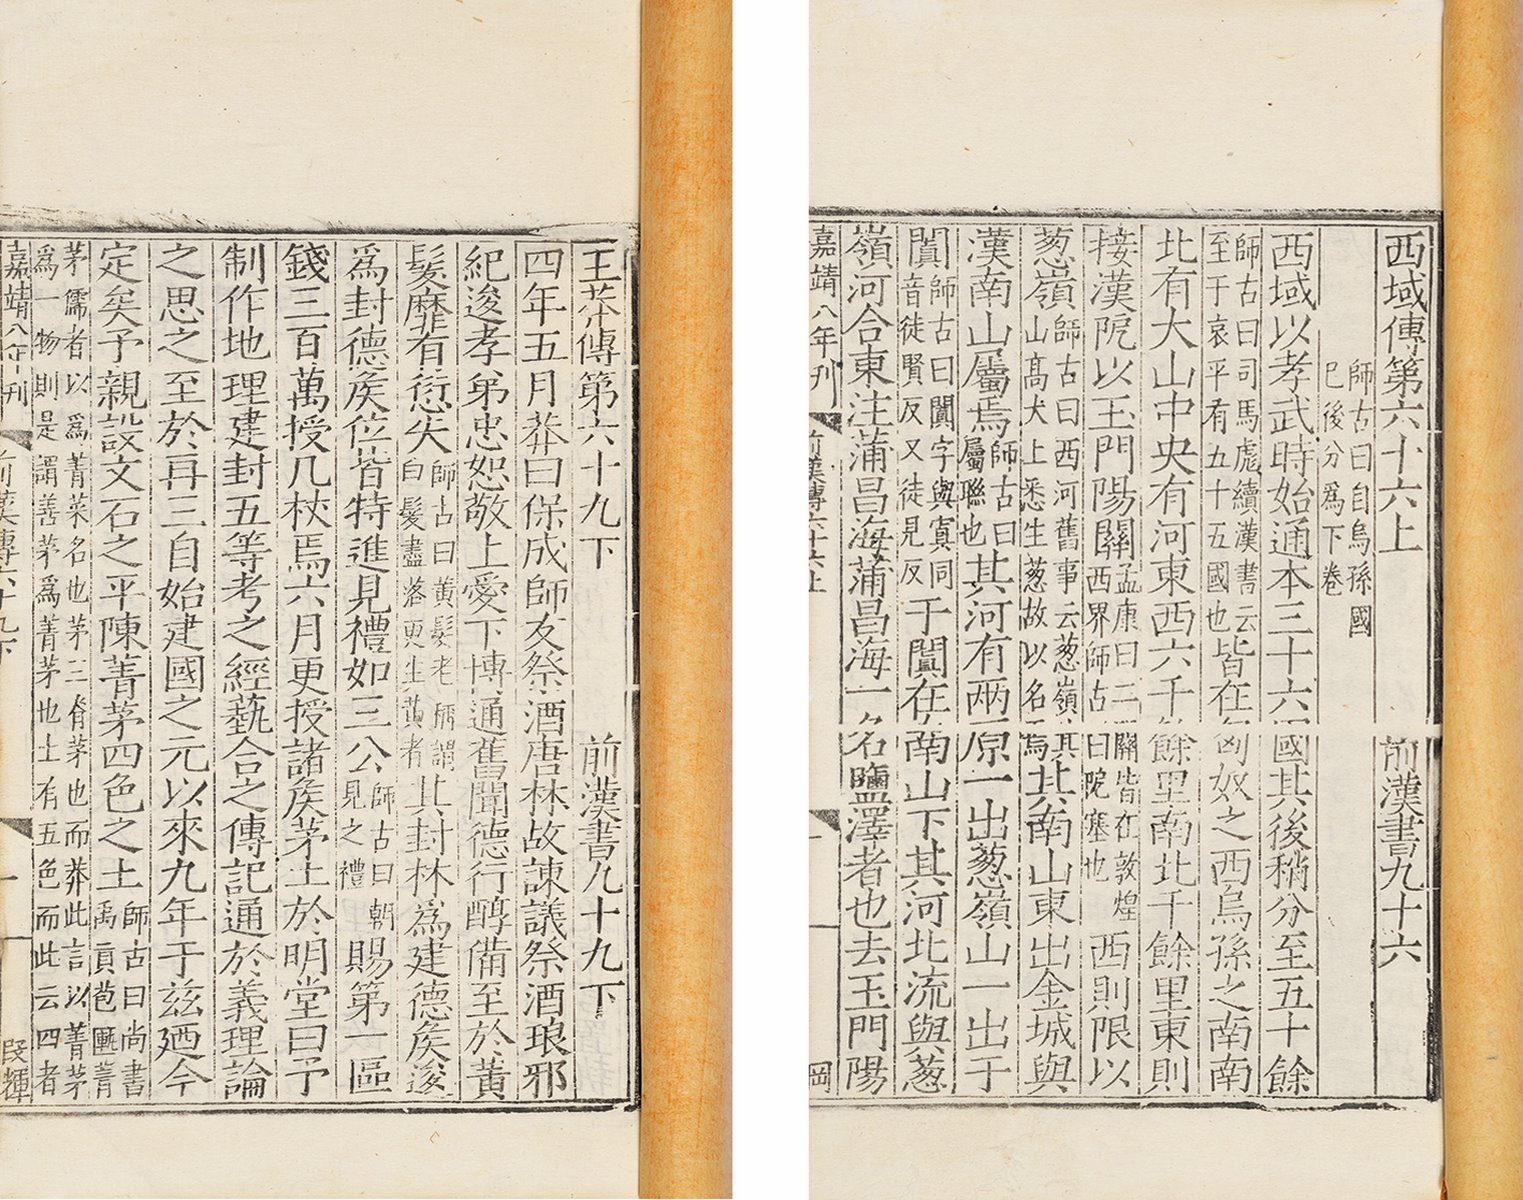 西域傳第六十六上 前漢書九十六
師古曰自烏孫國巳後分爲下卷
西域以孝武時始通本三十六國其後稍分至五十餘
師古曰司馬彪續漢書云至于哀平有五十五國也皆在匈奴之西烏孫之南南
北有大山中央有河東西六千餘里南北千餘里東則
接漢阸以玉門陽關孟康曰二關皆在敦煌西界師古曰阸塞也西則限以
葱嶺師古曰西河舊事云葱嶺其山高大上悉生葱故以名焉其南山東出金城與
漢南山屬焉師古曰屬聯也其河有兩原一出葱嶺山一出于
闐師古曰闐字與窴同音徒賢反又徒見反于闐在南山下其河北流與葱
嶺河合東注蒲昌海蒲昌海一名鹽澤者也去玉門陽
嘉靖八年刊 前漢傳六十六上 一 岡
王莽傳第六十九下 前漢書九十九下
四年五月莽曰保成師友祭酒唐林故諫議祭酒琅邪
紀逡孝弟忠恕敬上愛下博通舊聞德行醇備至於黃
髮靡有愆失師古曰黃髮老稱謂白髮盡落更生黃者其封林爲建德侯逡
爲封德侯位皆特進見禮如三公師古曰朝見之禮賜第一區
錢三百萬授几杖焉六月更授諸侯茅土於明堂曰予
制作地理建封五等考之經藝合之傳記通於義理論
之思之至於再三自始建國之元以來九年于茲廼今
定矣予親設文石之平陳菁茅四色之土師古曰尚書禹貢苞匭菁
茅儒者以爲菁菜名也茅三脊茅也而莽此言以菁茅爲一物則是謂善茅爲菁茅也土有五色而此云四者
嘉靖八年刊 前漢傳六十九下 一 段輝